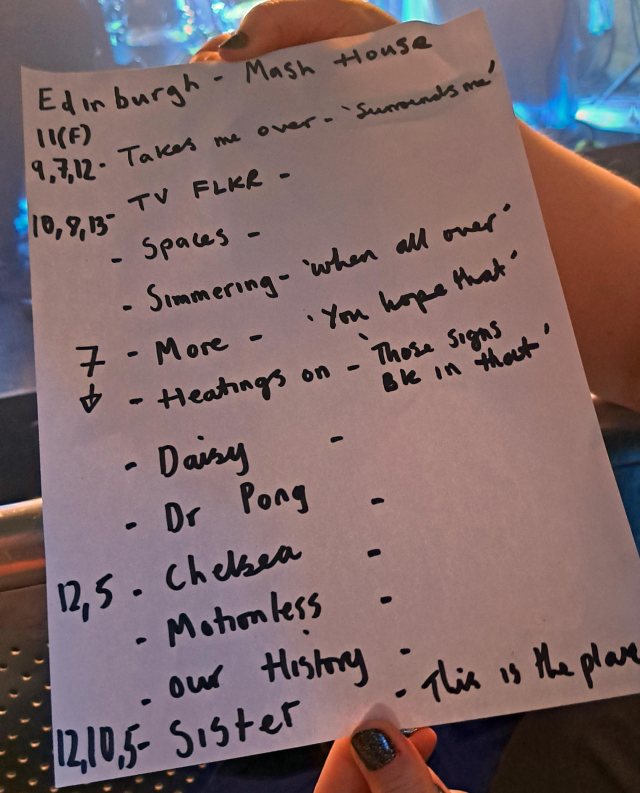 Edinburgh - Mash House
11(F)
9,7,12- Takes me over - 'Surrounds me'
10,8,13- TV FLKR -
- Spaces -
- Simmering - 'when all over'
7 - More - 'You hope that'
↓ - Heatings on - 'Those signs
BK in that'
- Daisy -
- Dr Pong -
12,5 - Chelsea -
- Motionless -
- our History -
12,10,5- Sister - This is the place